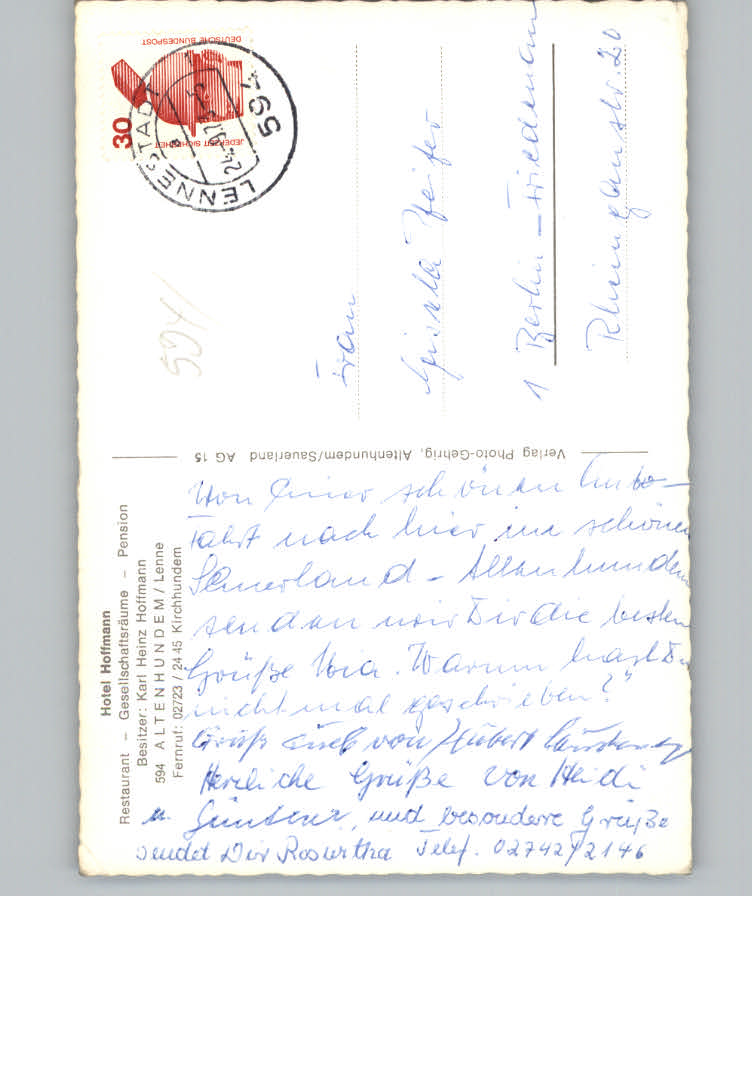 Hotel Hoffmann
Restaurant – Gesellschaftsräume – Pension
Besitzer: Karl Heinz Hoffmann
594 ALTENHUNDEM / Lenne
Fernruf: 02723 / 24 45 Kirchhundem
Von einer schönen Auto-
fahrt nach hier im schönen
Sauerland - Altenhundem
senden wir Dir die besten
Grüße. Warum hast Du
nicht mal geschrieben?
Gruß auch von Hubert
Herzliche Grüße von Heidi
u. Günter, und besondere Grüße
sendet Dir Roswitha Telef. 02742/2146
Verlag Photo-Gehrig, Altenhundem/Sauerland AG 15
DEUTSCHE BUNDESPOST
JEDERZEIT SICHERHEIT
30
594
LENNESTADT
5941
Frau
Gisela Pfeifer
1 Berlin - Friedenau
Rheingaustr. 20